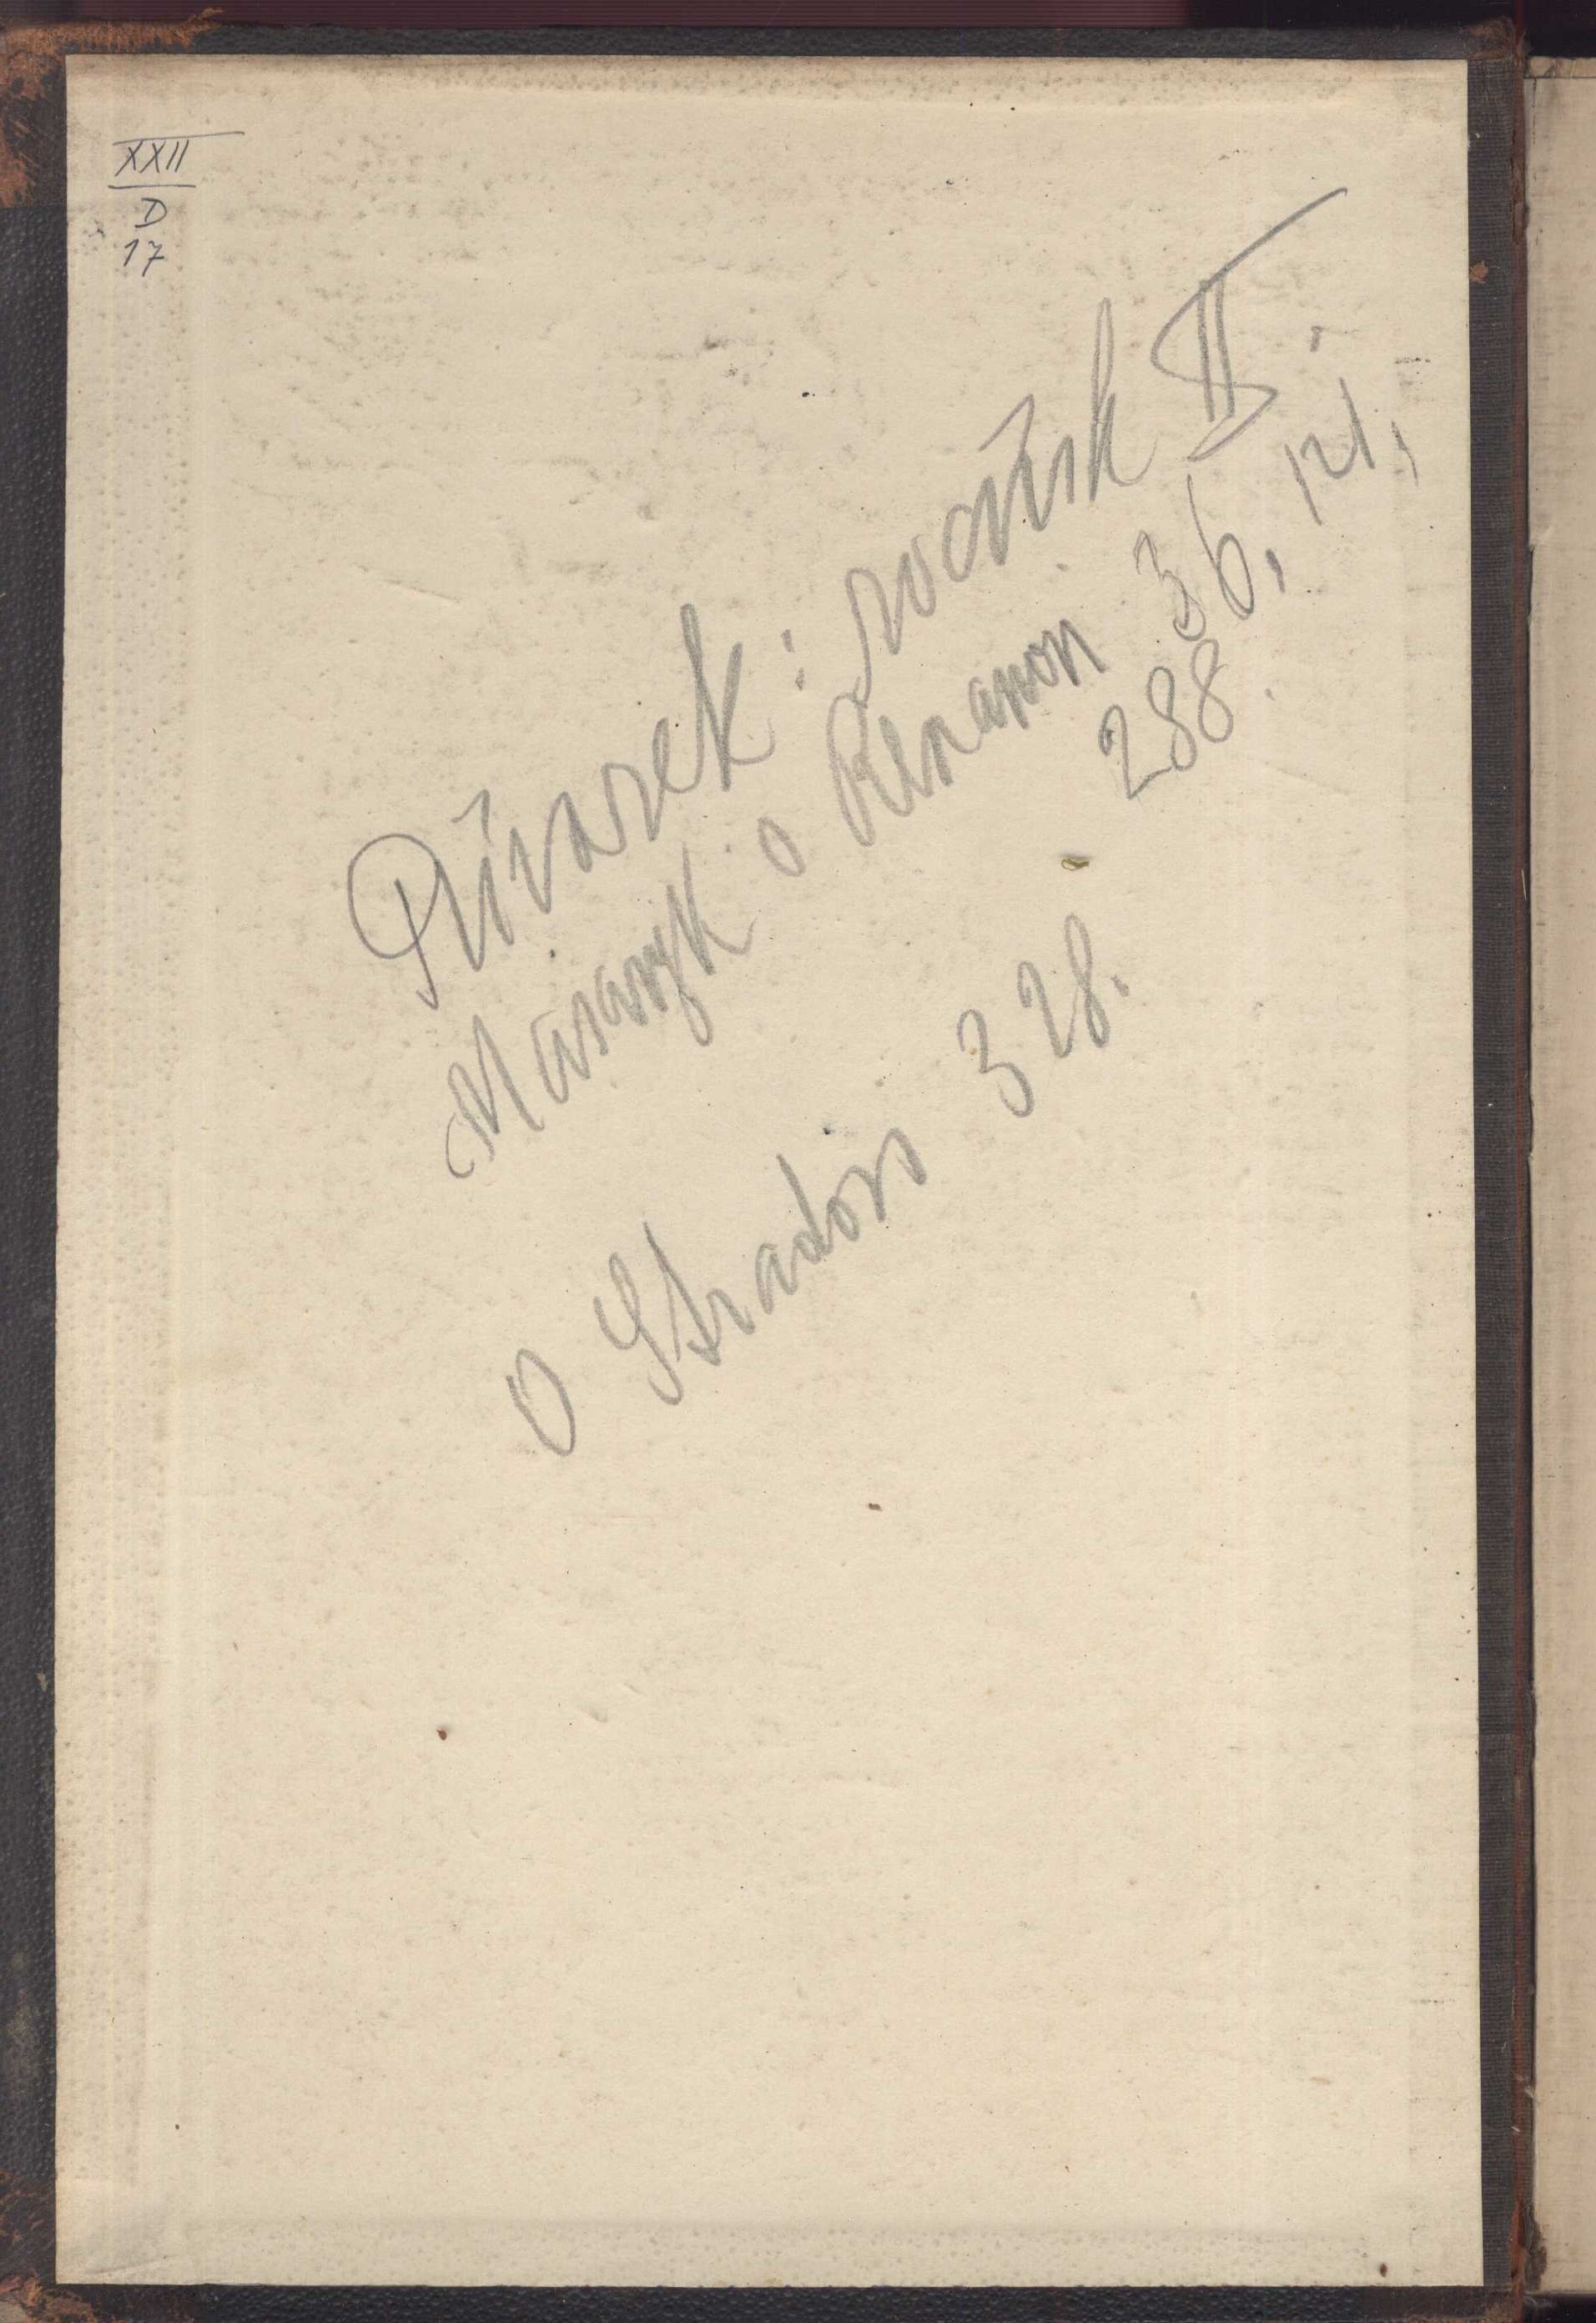 XXII
D
17
Přívazek: ročník II.
Masaryk o Renanovi 36, 121,
288.
O Stradovi 328.